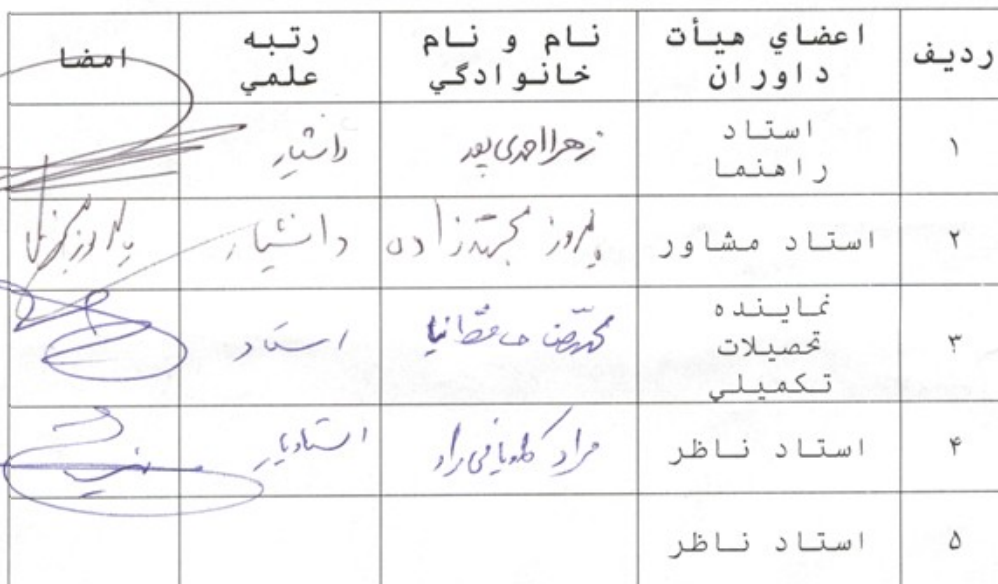 ردیف اعضاي هيأت داوران نام و نام خانوادگي رتبه علمي امضا
۱ استاد راهنما زهرا احمدی پور دانشیار
۲ استاد مشاور پیروز مجتهدزاده دانشیار
۳ نماینده تحصیلات تکمیلي محمدرضا حافظ نیا استاد
۴ استاد ناظر مراد کاویانی راد استادیار
۵ استاد ناظر